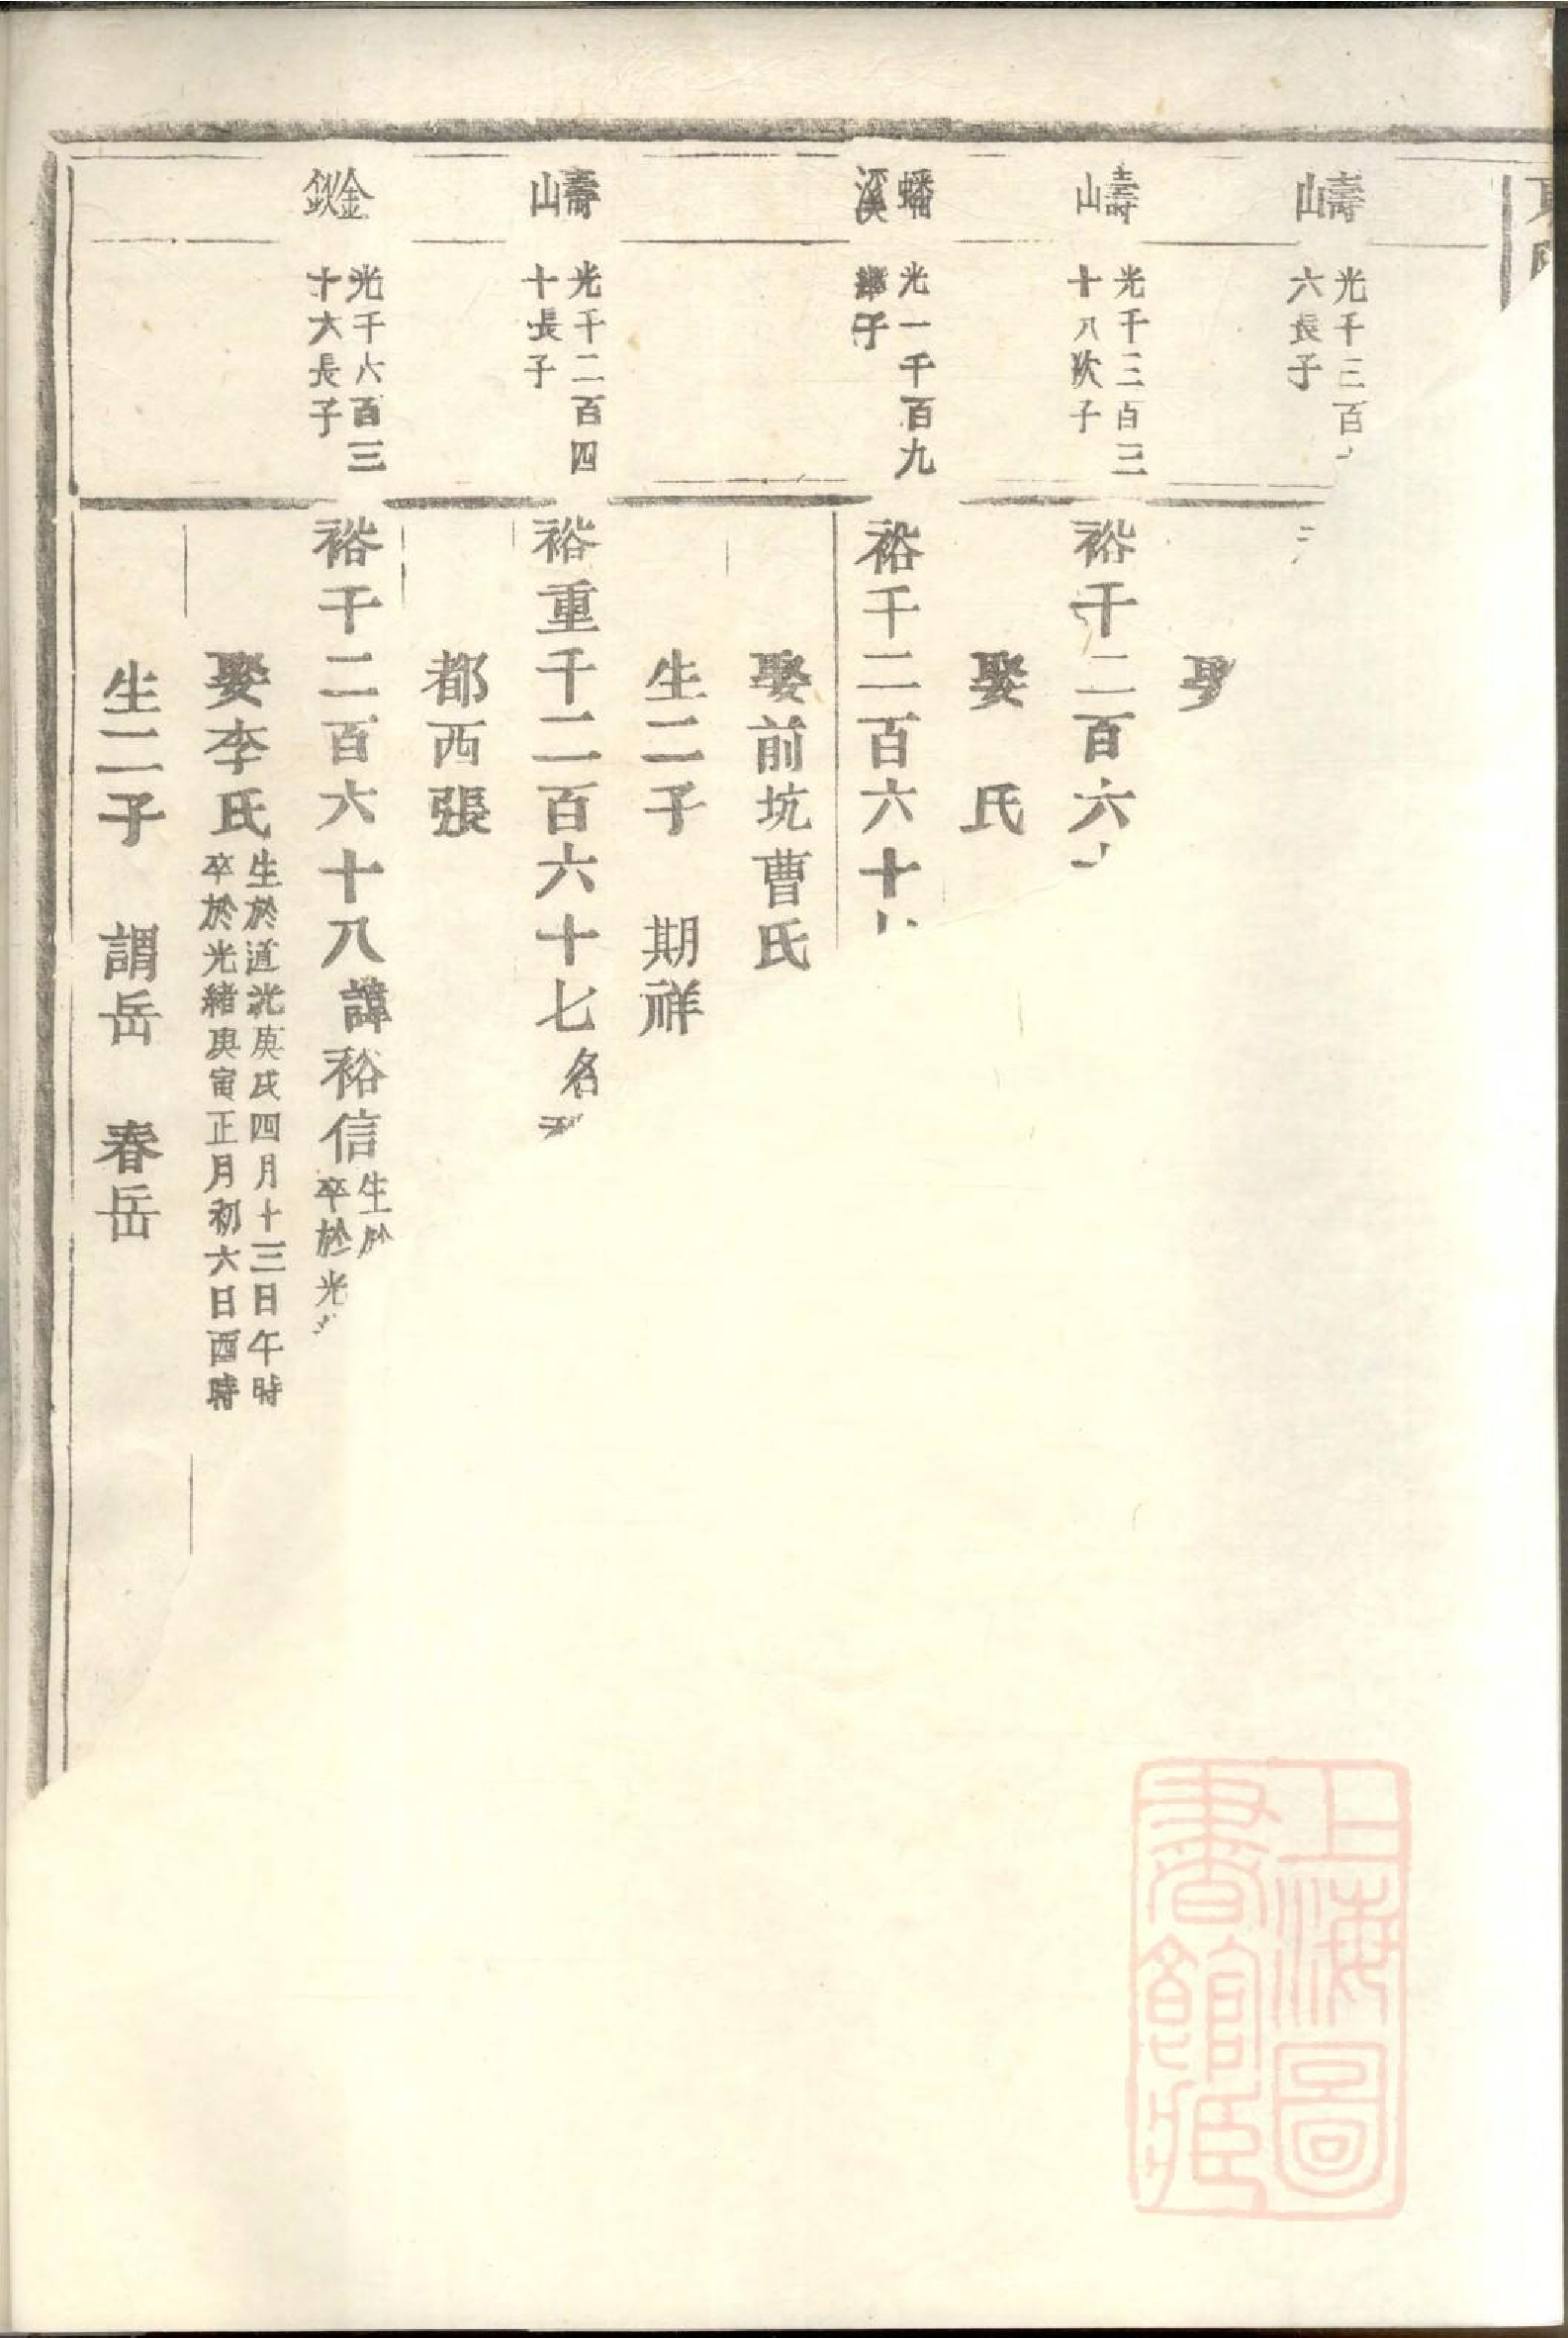 壽山
光千三百
六長子
娶
壽山
光千三百三
十八次子
裕千二百六
娶　氏
蟠溪
光一千百九
子
裕千二百六十
娶前坑曹氏
生二子　期祥
壽山
光千二百四
十長子
裕重千二百六十七名
都西張
金
光千六百三
十六長子
裕千二百六十八諱裕信
生於
卒於光
娶李氏
生於道光庚戌四月十三日午時
卒於光緒庚寅正月初六日酉時
生二子　謂岳　春岳
上海圖
書館藏